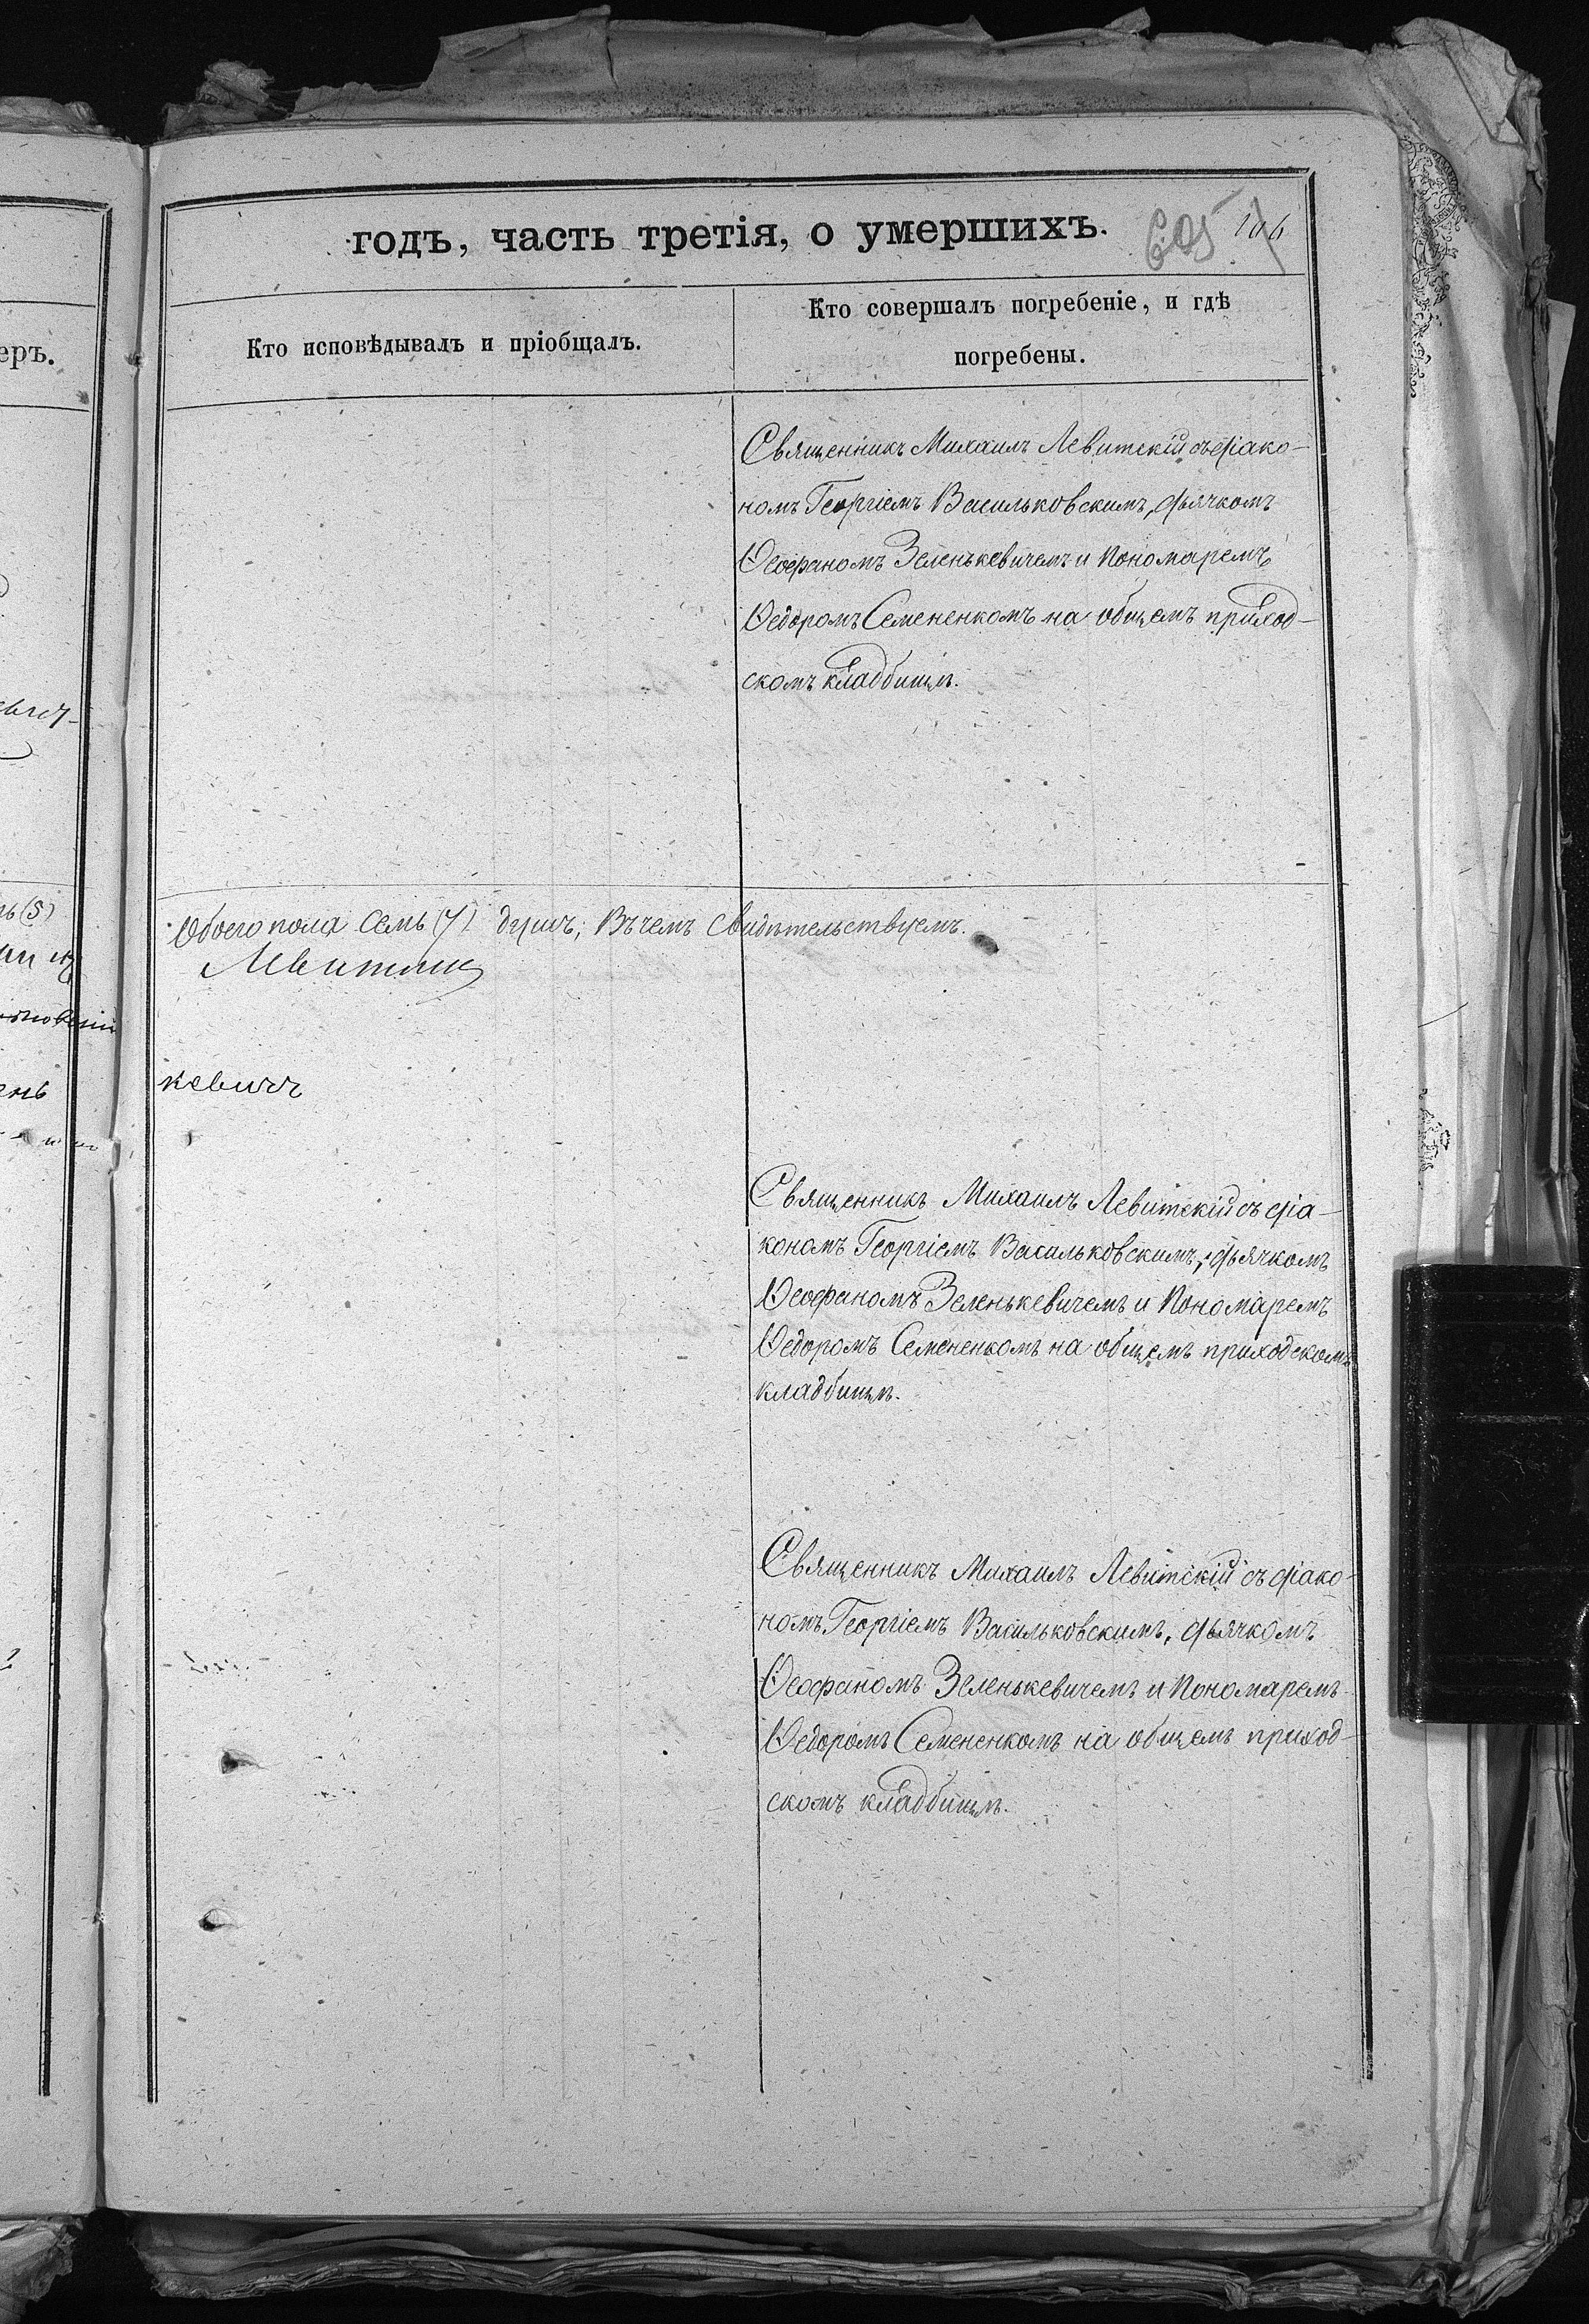 годъ, часть третія, о умершихъ.
605 106
Кто исповѣдывалъ и пріобщалъ.
Кто совершалъ погребеніе, и гдѣ
погребены.
еръ.
Священникъ Михаилъ Левитскій съ діако-
номъ Георгіемъ Васильковскимъ, дьячкомъ
Ѳеофаномъ Зеленькевичемъ и Пономаремъ
Ѳедоромъ Семененкомъ на общемъ приход-
скомъ кладбищѣ.
ь (5)
Обоего пола семь (7) душъ; Въ чемъ свидѣтельствуемъ.
Левитскій
кевичъ
Священникъ Михаилъ Левитскій съ діа-
кономъ Георгіемъ Васильковскимъ, дьячкомъ
Ѳеофаномъ Зеленькевичемъ и Пономаремъ
Ѳедоромъ Семененкомъ на общемъ приходскомъ
кладбищѣ.
Священникъ Михаилъ Левитскій съ діако-
номъ Георгіемъ Васильковскимъ, дьячкомъ
Ѳеофаномъ Зеленькевичемъ и Пономаремъ
Ѳедоромъ Семененкомъ на общемъ приход-
скомъ кладбищѣ.